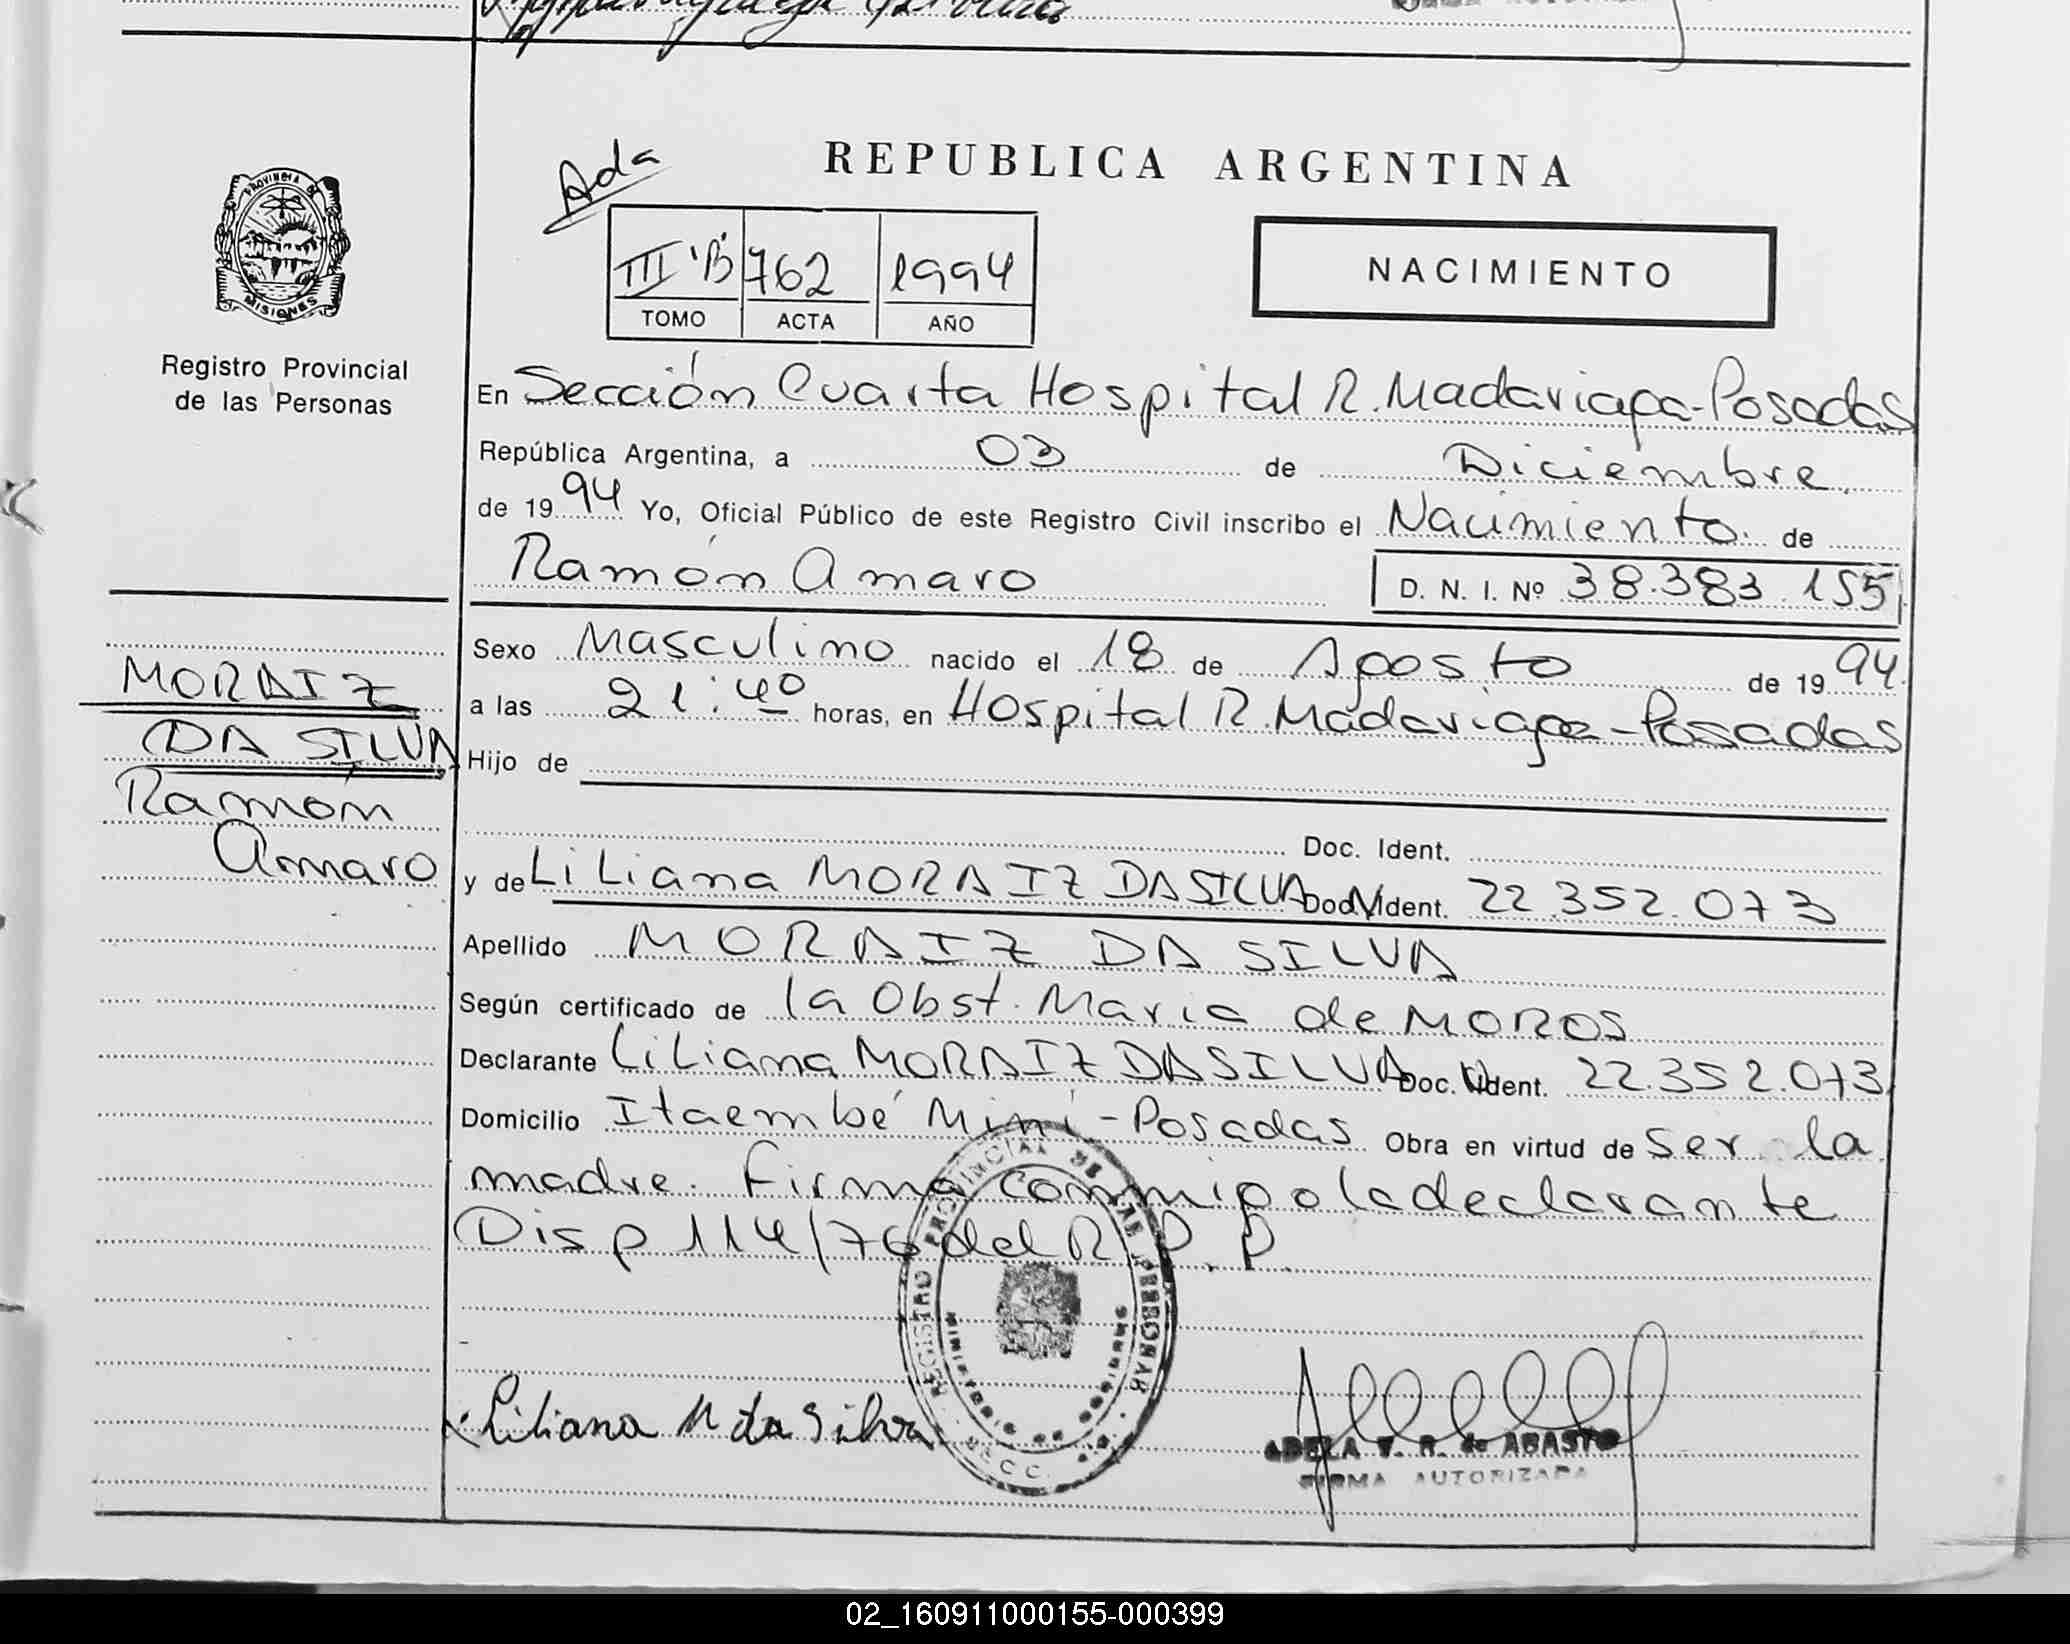 Ada
REPUBLICA ARGENTINA
III "B" 762 1994
TOMO ACTA AÑO
NACIMIENTO
PROVINCIA DE
MISIONES
Registro Provincial
de las Personas
En Sección Cuarta Hospital R. Madariaga-Posadas
República Argentina, a 03 de Diciembre
de 1994 Yo, Oficial Público de este Registro Civil inscribo el Nacimiento de
Ramón Amaro D. N. I. Nº 38.383.155
Sexo Masculino nacido el 18 de Agosto de 1994
a las 21:40 horas, en Hospital R. Madariaga-Posadas
Hijo de
Doc. Ident.
y de Liliana MORAIZ DA SILVA Doc. Ident. 22.352.073
Apellido MORAIZ DA SILVA
Según certificado de la Obst. Maria de MOROS
Declarante Liliana MORAIZ DA SILVA Doc. Ident. 22.352.073
Domicilio Itaembé Miní-Posadas Obra en virtud de ser la
madre. Firma conmigo la declarante
Disp 114/76 del R.P.P.
MORAIZ
DA SILVA
Ramón
Amaro
REGISTRO PROVINCIAL DE LAS PERSONAS
Liliana M da Silva
ADELA T. R. de ABASTO
FIRMA AUTORIZADA
02_160911000155-000399